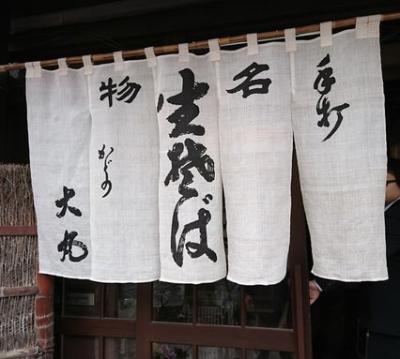 手打
名
生そば
物
かどの
大丸